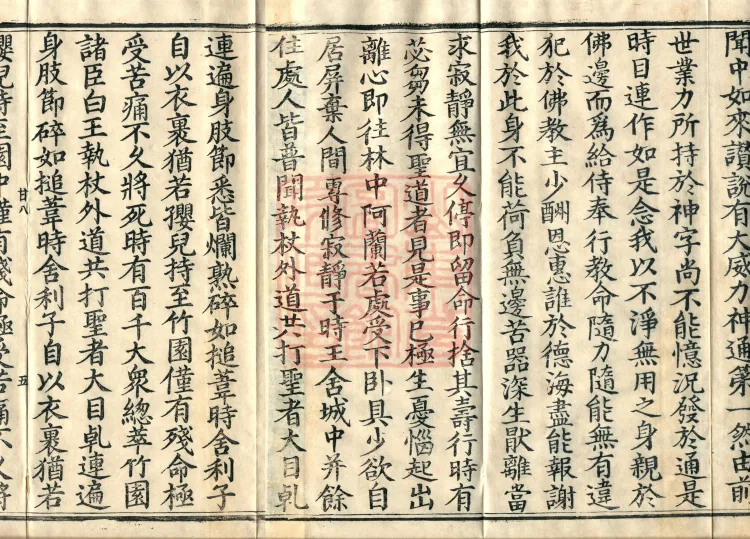 聞中如來讚說有大威力神通第一然由前
世業力所持於神字尚不能憶況發於通是
時目連作如是念我以不淨無用之身親於
佛邊而爲給侍奉行教命隨力隨能無有違
犯於佛教主少酬恩惠誰於德海盡能報謝
我於此身不能荷負無邊苦器深生猒離當
求寂靜無宜久停即留命行捨其壽行時有
苾芻未得聖道者見是事已極生憂惱起出
離心即往林中阿蘭若處受下卧具少欲自
居屏棄人間專修寂靜于時王舍城中并餘
住處人皆普聞執杖外道共打聖者大目乹
連遍身肢節悉皆爛熟碎如搥葦時舍利子
自以衣裹猶若孾兒持至竹園僅有殘命極
受苦痛不久將死時有百千大衆緫萃竹園
諸臣白王執杖外道共打聖者大目乹連遍
身肢節碎如搥葦時舍利子自以衣裹猶若
廿八 五
孾兒持園中僅有殘命極受苦痛不久將